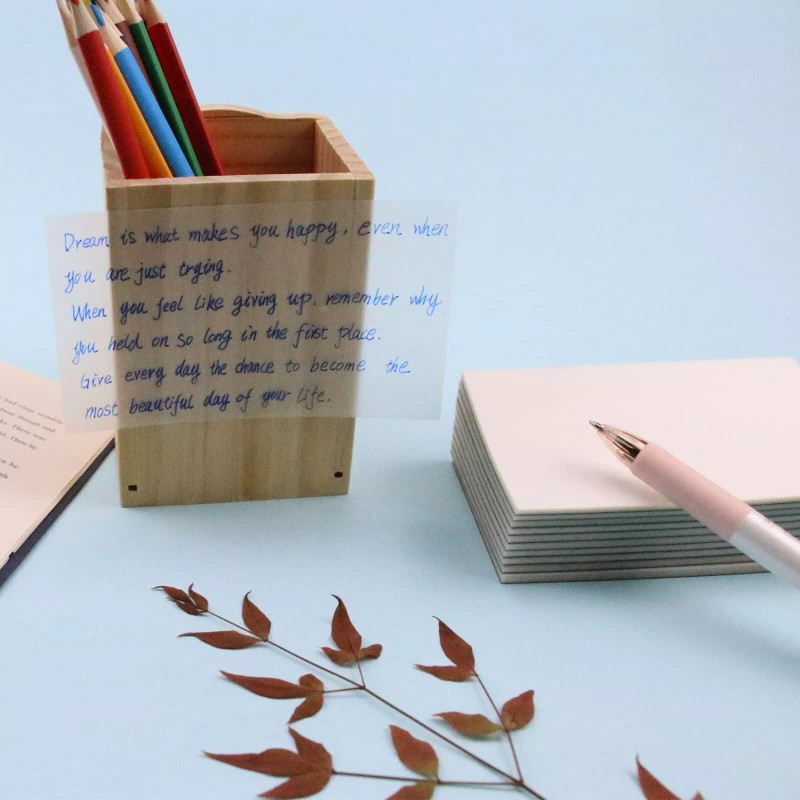 Dream is what makes you happy, even when
you are just trying.
When you feel like giving up, remember why
you held on so long in the first place.
Give every day the chance to become the
most beautiful day of your life.